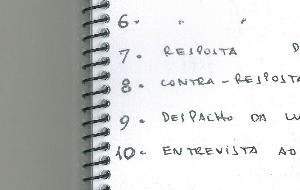 6. " "
7. RESPOSTA D
8. CONTRA-RESPOSTA
9. DESPACHO DA LU
10. ENTREVISTA AO